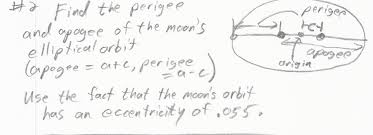 #2 Find the perigee
and apogee of the moon's
elliptical orbit
(apogee = a+c, perigee
= a-c)
Use the fact that the moon's orbit
has an eccentricity of .055.
perigee
c
apogee
origin